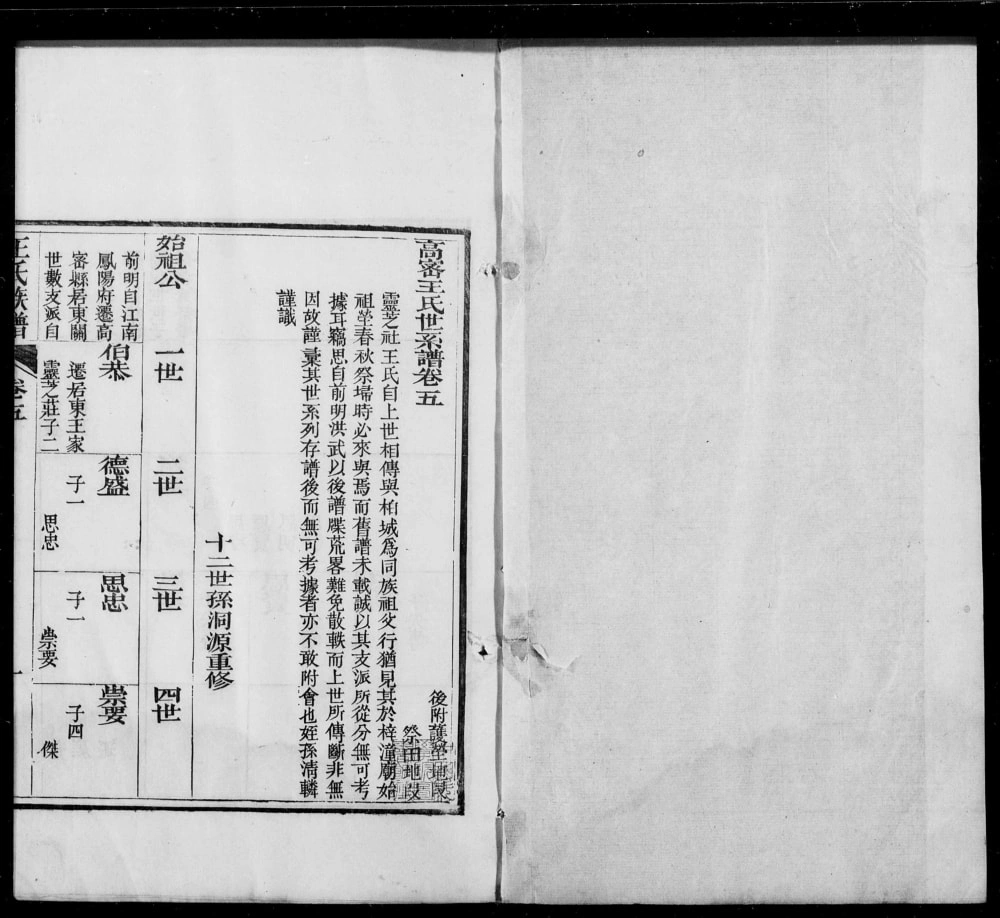 高密王氏世系譜卷五
後附護塋地段
祭田地段
靈芝社王氏自上世相傳與柏城爲同族祖父行猶見其於梓潼廟始
祖塋春秋祭埽時必來與焉而舊譜未載誠以其支派所從分無可考
據耳竊思自前明洪武以後譜牒荒畧難免散軼而上世所傳斷非無
因故謹彙其世系列存譜後而無可考據者亦不敢附會也姪孫清轔
謹識
十二世孫洞源重修
始祖公
一世
二世
三世
四世
前明自江南
鳳陽府遷高
密縣居東關
世數支派自
伯恭
遷居東王家
靈芝莊子二
德盛
子一
思忠
思忠
子一
崇要
崇要
子四
傑
王氏族譜
卷五
一